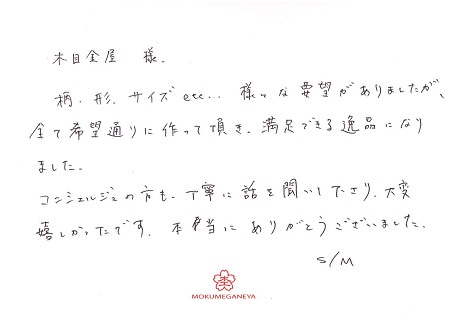 木目金屋 様.
柄・形、サイズ etc... 様々な要望がありましたが、
全て希望通りに作って頂き、満足できる逸品になり
ました。
コンシェルジュの方も、丁寧に話を聞いて下さり、大変
嬉しかったです。本当にありがとうございました。
S/M
MOKUMEGANEYA